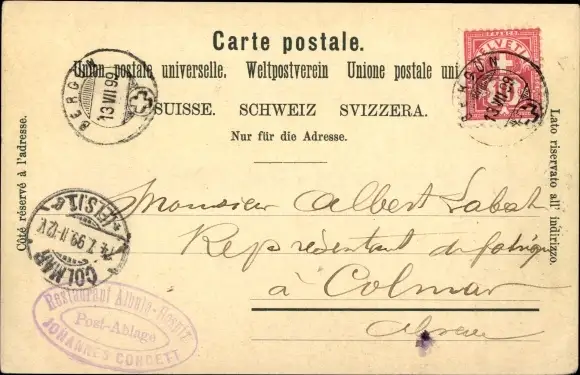 Carte postale.
Union postale universelle. Weltpostverein Unione postale uni
SUISSE. SCHWEIZ SVIZZERA.
Nur für die Adresse.
Côté réservé à l'adresse.
Lato riservato all' indirizzo.
HELVETIA
FRANCO
10
BERGÜN
13 VII 99
BERGÜN
13 VII 99
COLMAR (ELS) 1 g
14.7.99. 11-12 V.
Restaurant Albula-Hospiz
Post-Ablage
JOHANNES CONDETT
Monsieur Albert Labat
Représentant de fabriques
à Colmar
Alsace